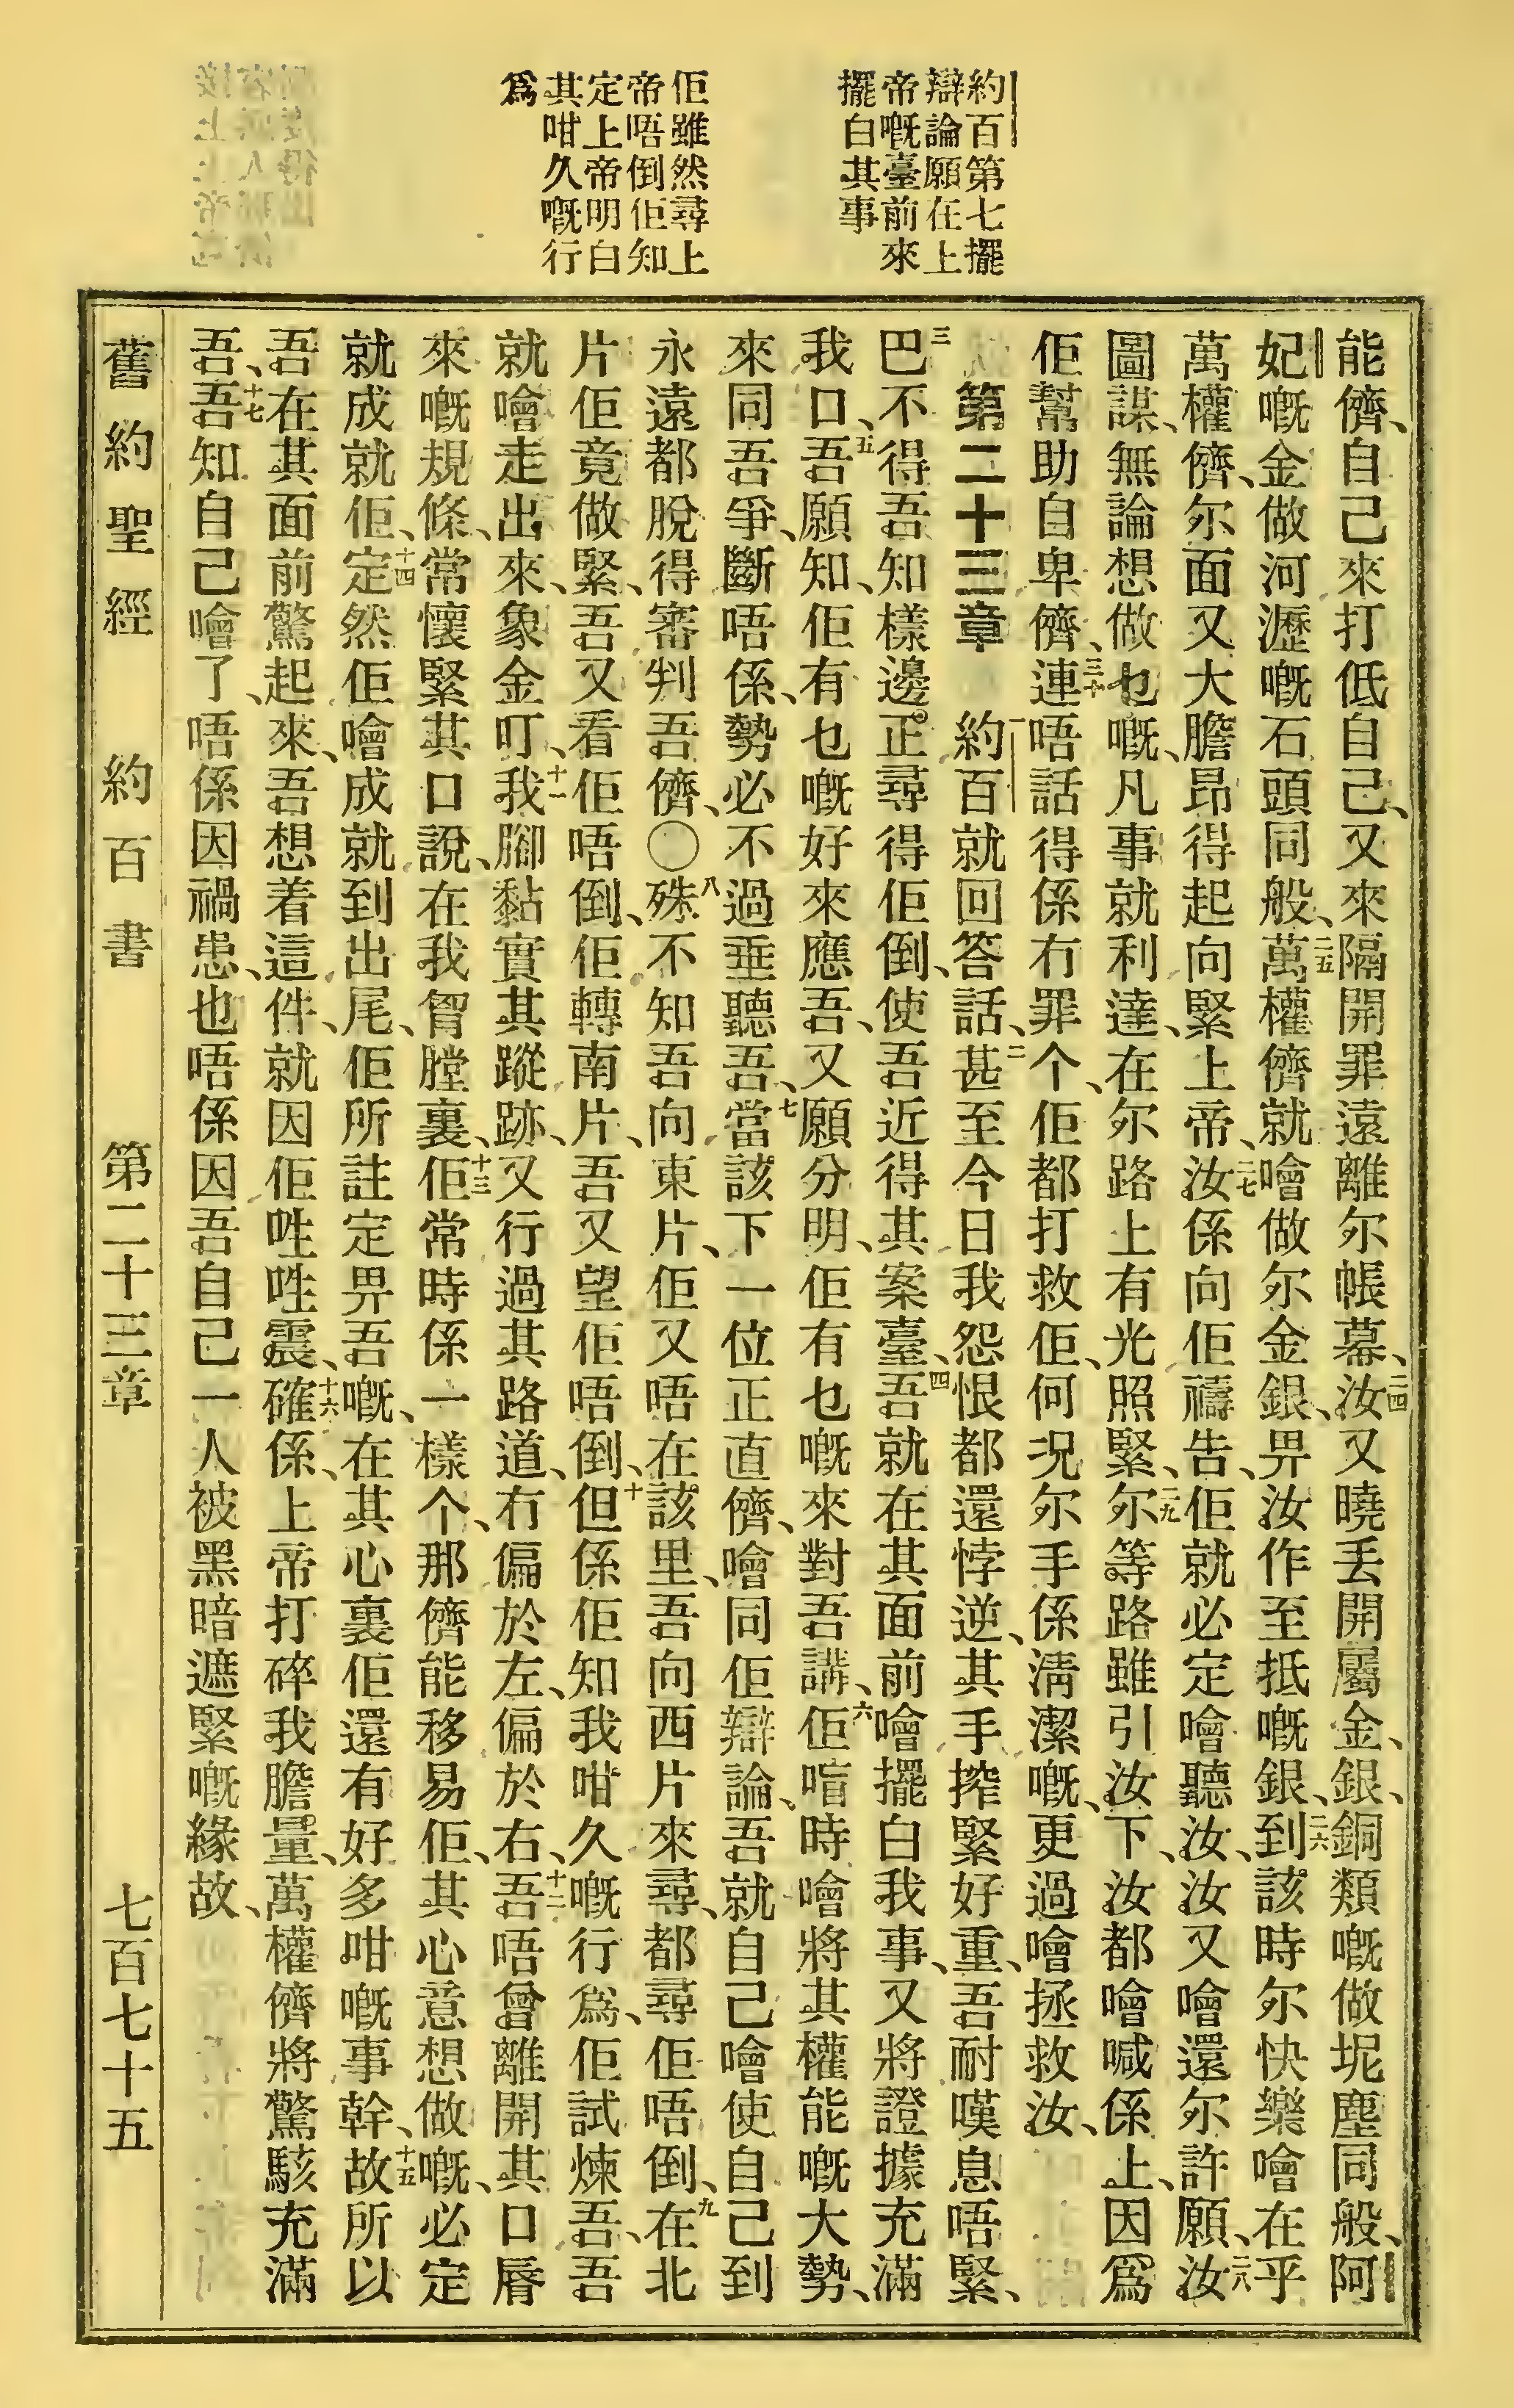 約百第七擺
辯論願在上
帝嘅臺前來
擺白其事
佢雖然尋上
帝唔倒佢知
定上帝明白
其咁久嘅行
爲
能儕、自己來打低自己、又來隔開罪遠離尔帳幕、二四汝又曉丢開屬金、銀、銅類嘅做坭塵同般、阿
妃嘅金做河瀝嘅石頭同般、二五萬權儕就噲做尔金銀、畀汝作至抵嘅銀、二六到該時尔快樂噲在乎
萬權儕、尔面又大膽昂得起向緊上帝、二七汝係向佢禱告、佢就必定噲聽汝、汝又噲還尔許願、二八汝
圖謀、無論想做乜嘅、凡事就利達、在尔路上有光照緊、二九尔等路雖引汝下、汝都噲喊係上、因爲
佢幫助自卑儕、三十連唔話得係冇罪个、佢都打救佢、何况尔手係淸潔嘅、更過噲拯救汝、
第二十三章　約百就回答話、二甚至今日我怨恨都還悖逆、其手搾緊好重、吾耐嘆息唔緊、
三巴不得吾知樣邊正尋得佢倒、使吾近得其案臺、四吾就在其面前噲擺白我事、又將證據充滿
我口、五吾願知、佢有乜嘅好來應吾、又願分明、佢有乜嘅來對吾講、六佢㖡時噲將其權能嘅大勢、
來同吾爭、斷唔係、勢必不過垂聽吾、七當該下一位正直儕、噲同佢辯論、吾就自己噲使自己到
永遠都脫得審判吾儕、〇八殊不知吾向東片、佢又唔在該里、吾向西片來尋、都尋佢唔倒、九在北
片佢竟做緊、吾又看佢唔倒、佢轉南片、吾又望佢唔倒、十但係佢知我咁久嘅行爲、佢試煉吾、吾
就噲走出來、象金叮、十一我腳黏實其蹤跡、又行過其路道、冇偏於左、偏於右、十二吾唔曾離開其口脣
來嘅規條、常懷緊其口說、在我胷膛裏、十三佢常時係一樣个、那儕能移易佢、其心意想做嘅、必定
就成就佢、十四定然佢噲成就到出尾、佢所註定畀吾嘅、在其心裏佢還有好多咁嘅事幹、十五故所以
吾在其面前驚起來、吾想着這件、就因佢𠵇𠵇震、十六確係、上帝打碎我膽量、萬權儕將驚駭充滿
吾、十七吾知自己噲了、唔係因禍患、也唔係因吾自己一人被黑暗遮緊嘅緣故、
舊約聖經　約百書　第二十三章　七百七十五